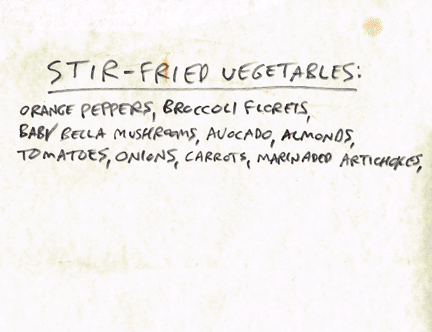 STIR-FRIED VEGETABLES:
ORANGE PEPPERS, BROCCOLI FLORETS,
BABY BELLA MUSHROOMS, AVOCADO, ALMONDS,
TOMATOES, ONIONS, CARROTS, MARINADED ARTICHOKES,